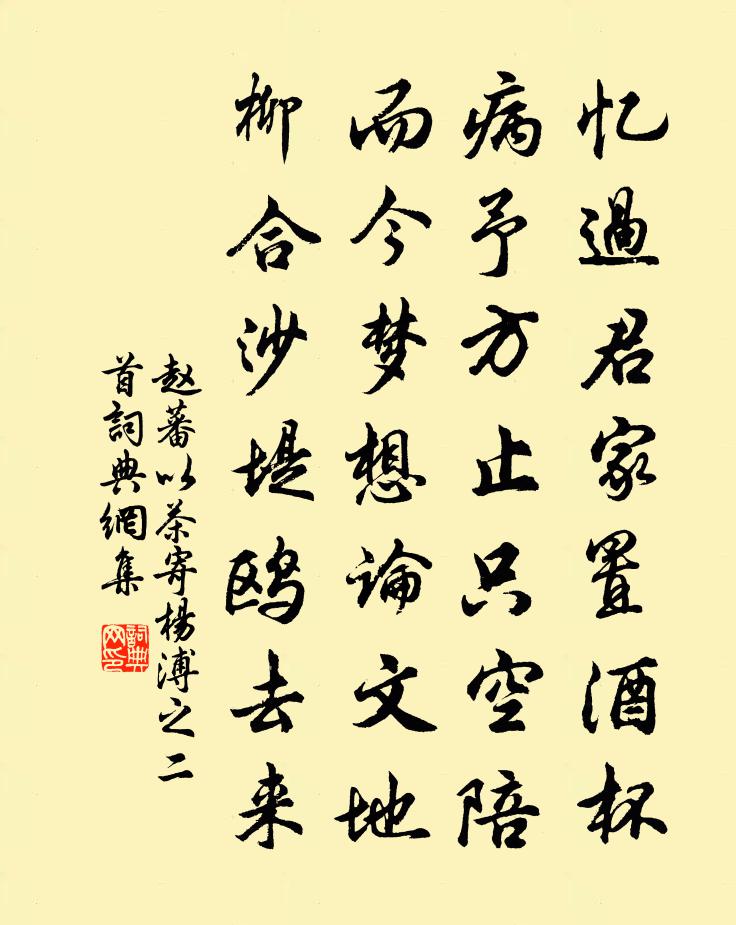 忆過君家置酒杯
病予方止只空陪
而今梦想論文地
柳合沙堤鸥去来
赵蕃以茶寄楊溥之二
首詞典網集
詞典
网印